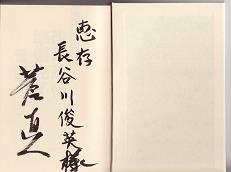 恵存
長谷川俊英様
蒼直